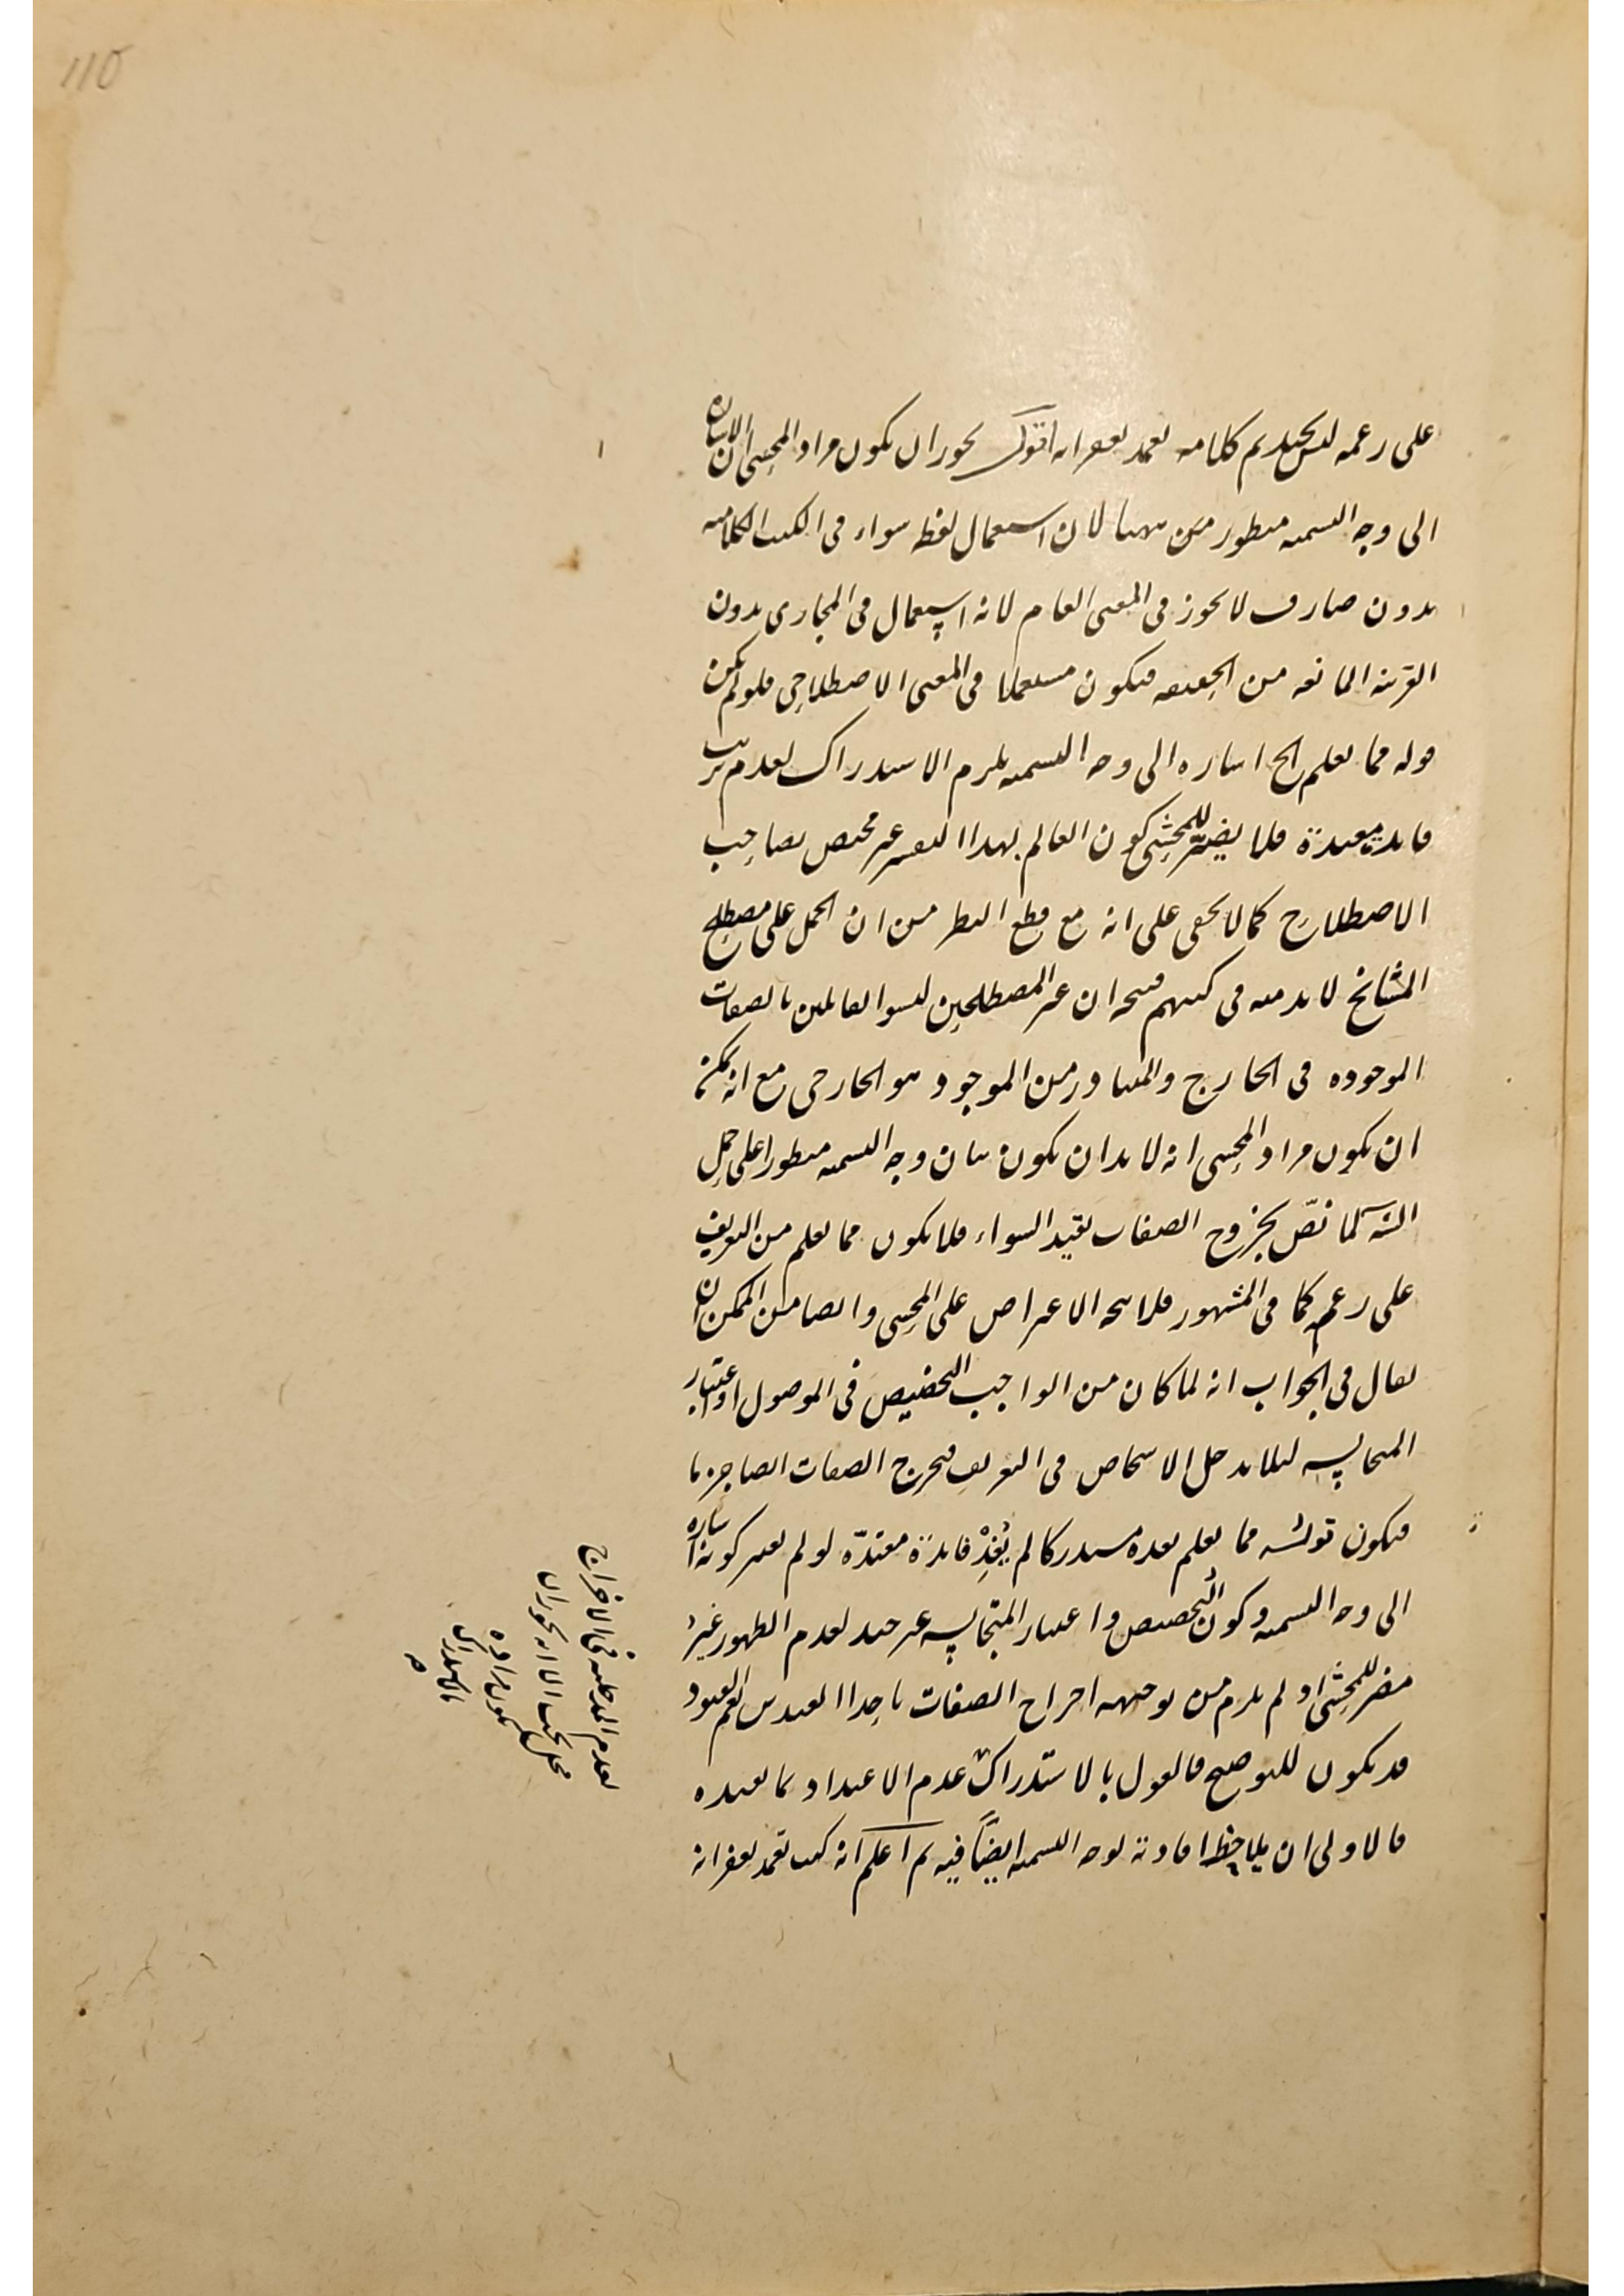 115
على زعمه ليس بجيد تم كلامه تغمد بغفرانه اقول يجوز ان يكون مراد المحشى ان الاشارة
الى وجه التسمية منظور من سوا لان استعمال لفظ سواء فى الكتب الكلامية
بدون صارف لا يجوز فى المعنى العام لانه استعمال فى المجازى بدون
القرينة المانعة من الحقيقة فيكون مستعملا فى المعنى الاصطلاحى فلو لم يكن
قوله مما يعلم الخ اشارة الى وجه التسمية يلزم الاستدراك لعدم ترتب
فايدة معتدة فلا يضر للمحشى كون العالم بهذا التفسير غير مختص بصاحب
الاصطلاح كما لا يخفى على انه مع قطع النظر من ان الحمل على مصطلح
المشايخ لا بد منه فى كتبهم فيجه ان غير المصطلحين ليسوا لعالمين بالصفات
الموجودة فى الخارج والمتبادر من الموجود هو الخارجى مع انه يمكن
ان يكون مراد المحشى انه لا بد ان يكون بيان وجه التسمية منظورا على حمل
الشه لما نصّ بخروج الصفات بقيد السواء فلا يكون مما يعلم من التعريف
على زعمه كما فى المشهور فلا يتجه الاعتراض على المحشى وايضا من الممكن ان
يقال فى الجواب انه لما كان من الواجب التخصيص فى الموصول او اعتبار
المتجانسة لئلا يدخل الاشخاص فى التعريف فيخرج الصفات ايضا جزما
فيكون قوله مما يعلم بعده مستدركا لم يُفِدْ فايدة معتدّة لو لم يعتبر كونه اشارة
الى وجه التسمية وكون التخصيص واعتبار المتجانسة غير جيد لعدم الظهور غير
مضر للمحشى اذ لم يلزم من توجيهه اخراج الصفات باحد القيدين نعم القيود
قد يكون للتوضيح فالقول بالاستدراك عدم الاعتداد بما يفيده
فالاولى ان يلاحظ افادته لوجه التسمية ايضاً فيه ثم اعلم انه كتب تغمد بغفرانه
لعدم المدخلية فى الاخراج
محل بحث الا انه يجوز ان
يكون مراده
بالاستدراك